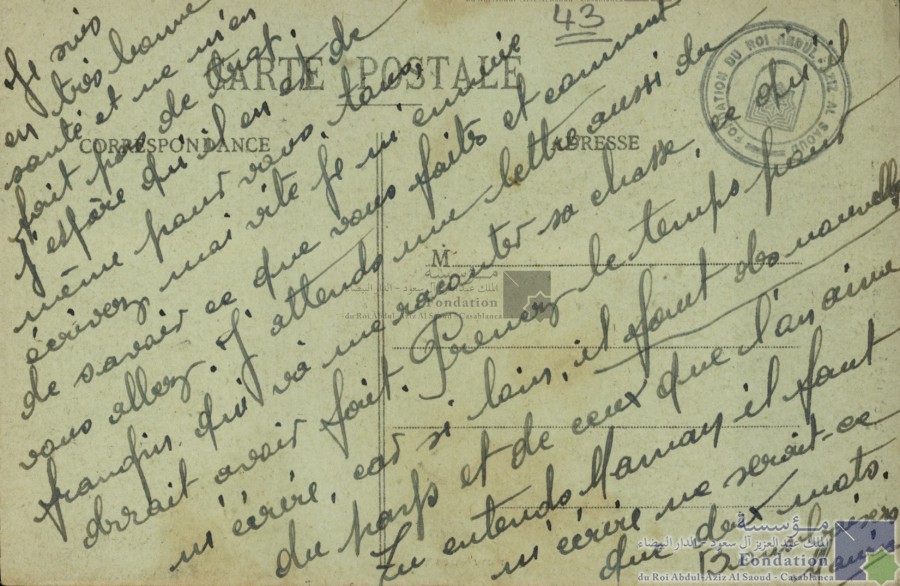 43
CARTE POSTALE
CORRESPONDANCE
ADRESSE
M
FONDATION DU ROI ABDUL AZIZ AL SAOUD
Je suis
en très bonne
santé et ne m'en
fait pas de tout.
J'espère qu'il en et de
même pour vous tous,
écrivez moi vite Je m'ennuie
de savoir ce que vous faits et comment
vous allez. J'attends une lettre aussi du
frangin qui va me raconter sa chasse, ce qu'il
dorait avoir fait. Prenez le temps pour
m'écrire, car si loin, il faut des nouvelles
du pays et de ceux que l'on aime
Tu entends Maman il faut
m'écrire ne serait-ce
que deux mots.
Bons baisers
مؤسسة
الملك عبد العزيز آل سعود - الدار البيضاء
Fondation
du Roi Abdul-Aziz Al Saoud - Casablanca
مؤسسة
الملك عبد العزيز آل سعود - الدار البيضاء
Fondation
du Roi Abdul-Aziz Al Saoud - Casablanca